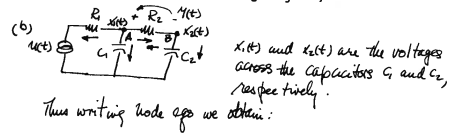 (b)
R₁ x₁(t) + R₂ - y(t)
A B x₂(t)
u(t)
C₁ C₂
x₁(t) and x₂(t) are the voltages
across the capacitors C₁ and C₂,
respectively.
Thus writing node eqs we obtain: